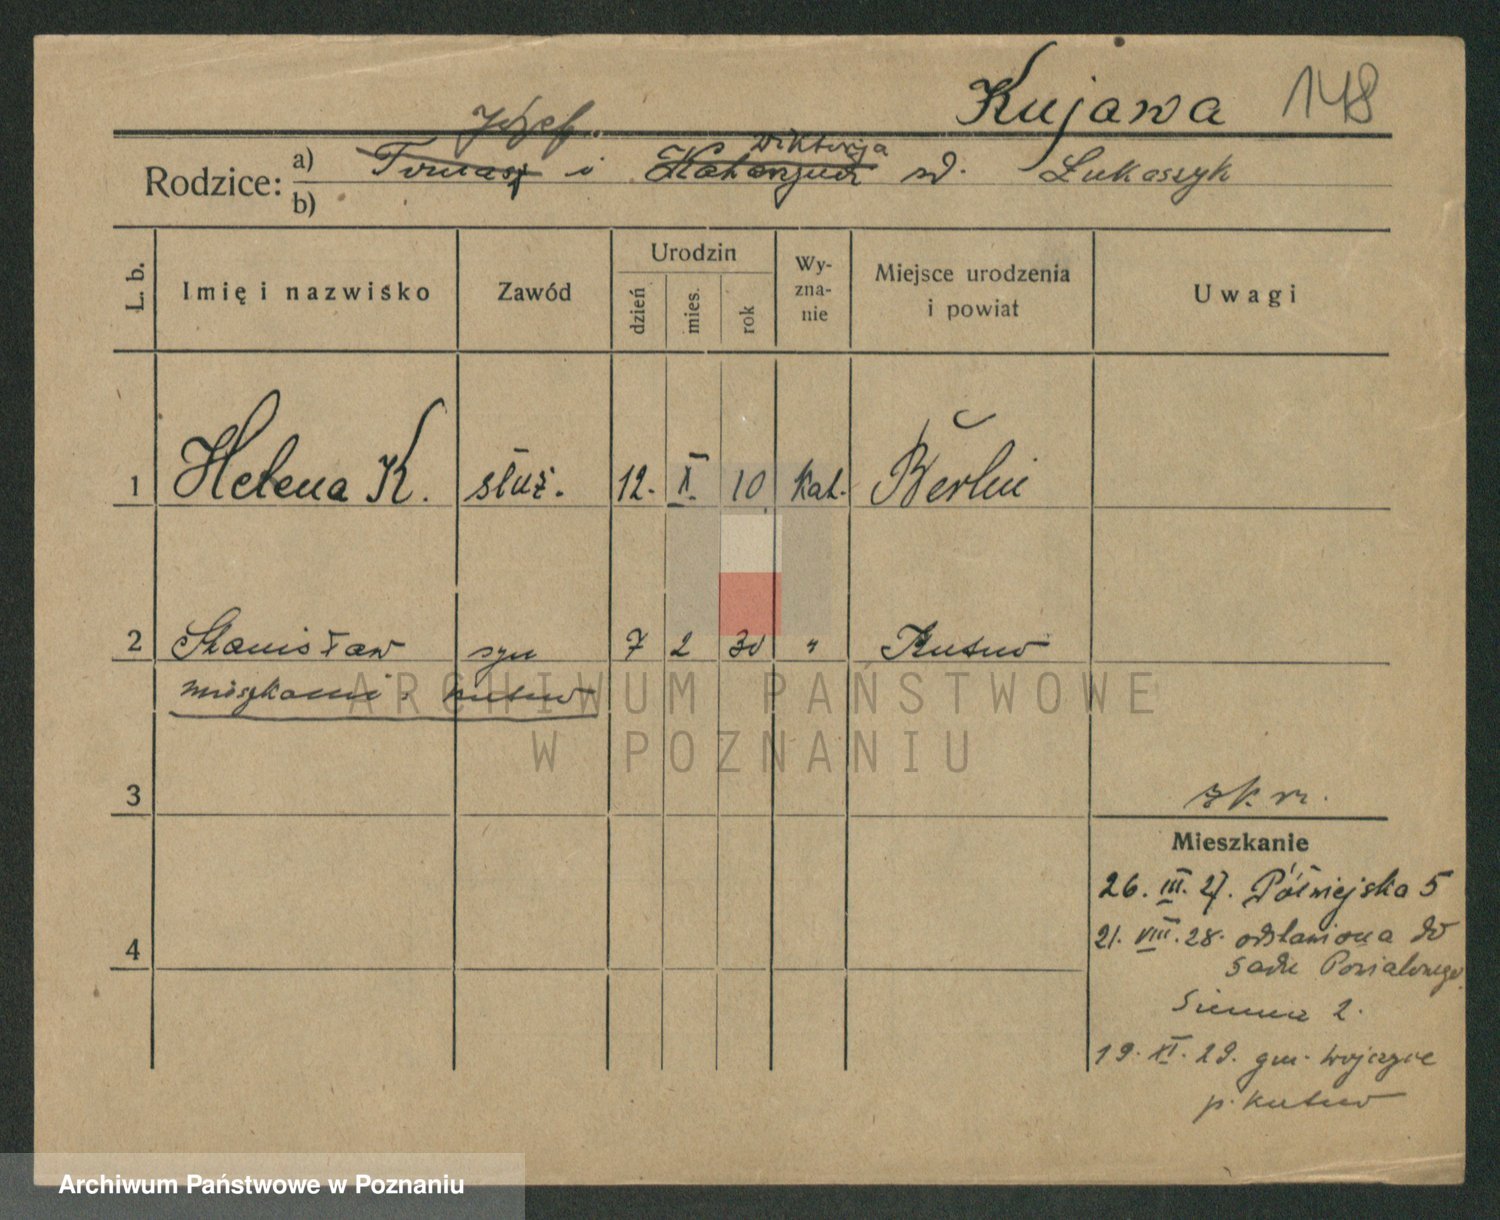 Kujawa 148
Józef.
Wiktorja
Rodzice: a) Tomasz i Katarzyna zd. Łukaszyk
b)
L. b. Imię i nazwisko Zawód Urodzin dzień mies. rok Wy-zna-nie Miejsce urodzenia i powiat Uwagi
1 Helena K. służ. 12. X. 10 kat. Berlin
2 Stanisław syn 7 2 30 " Kutno
mieszkanie: Kutno
ARCHIWUM PAŃSTWOWE
W POZNANIU
3
Mieszkanie
26. III. 27. Półwiejska 5
21. VIII. 28. odstawiona do
4
Sądu Powiatowego
Sienna 2.
19. XI. 29. gm. Wojszyce
p. Kutno
Archiwum Państwowe w Poznaniu